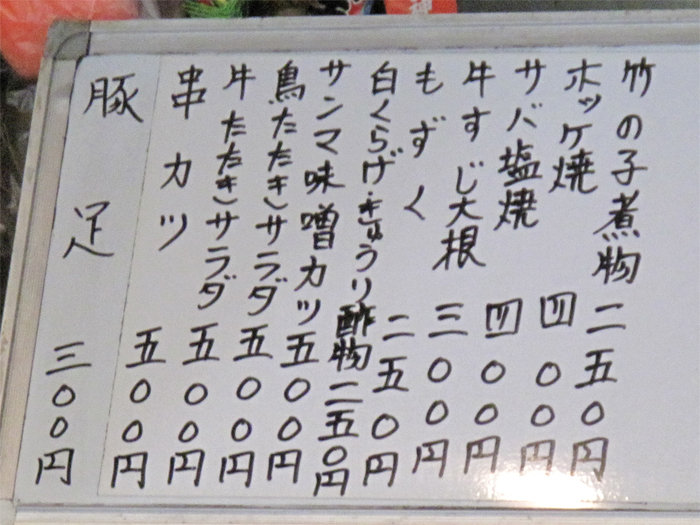 竹の子煮物二五〇円
ホッケ焼四〇〇円
サバ塩焼四〇〇円
牛すじ大根三〇〇円
もずく二五〇円
白くらげ・きゅうり酢物二五〇円
サンマ味噌カツ五〇〇円
鳥たたきサラダ五〇〇円
牛たたきサラダ五〇〇円
串カツ五〇〇円
豚足三〇〇円